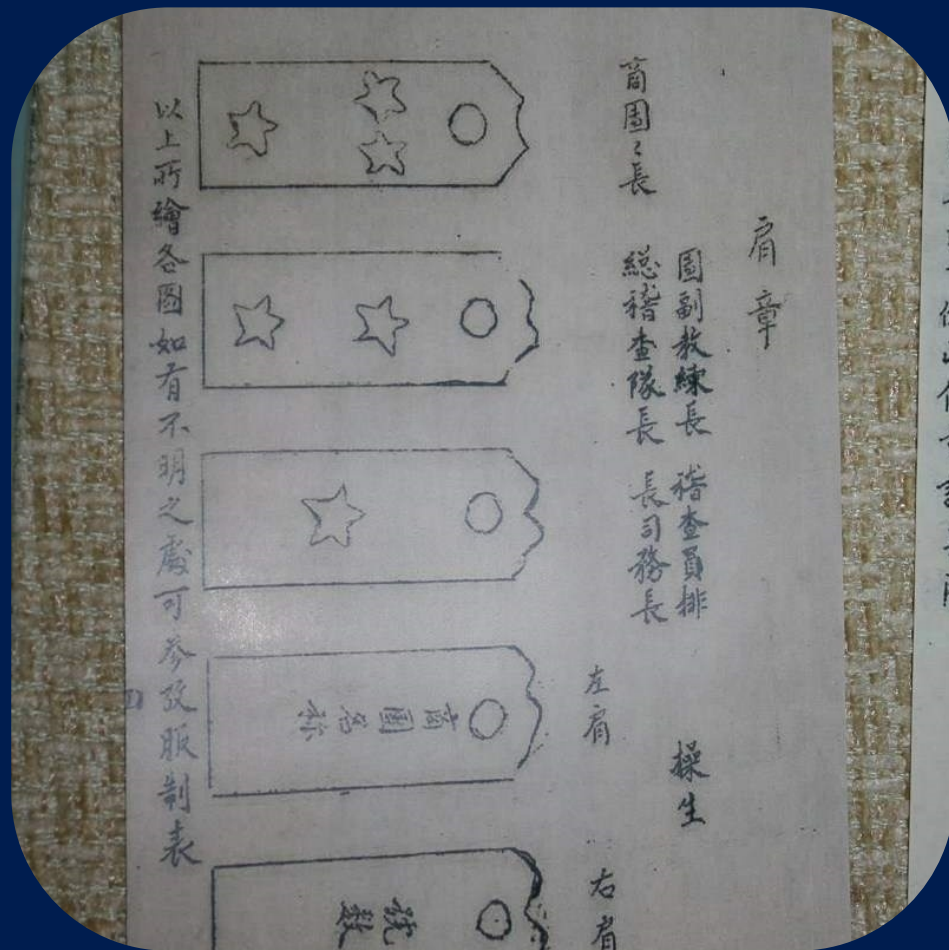 肩章
商團〻長
團副教練長
総稽查隊長
稽查員排
長司務長
操生
左肩
右肩
商團名称
號數
以上所繪各圖如有不明之處可參攷服制表